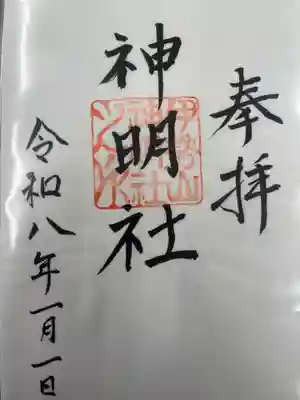 奉拝
神明社
令和八年一月一日